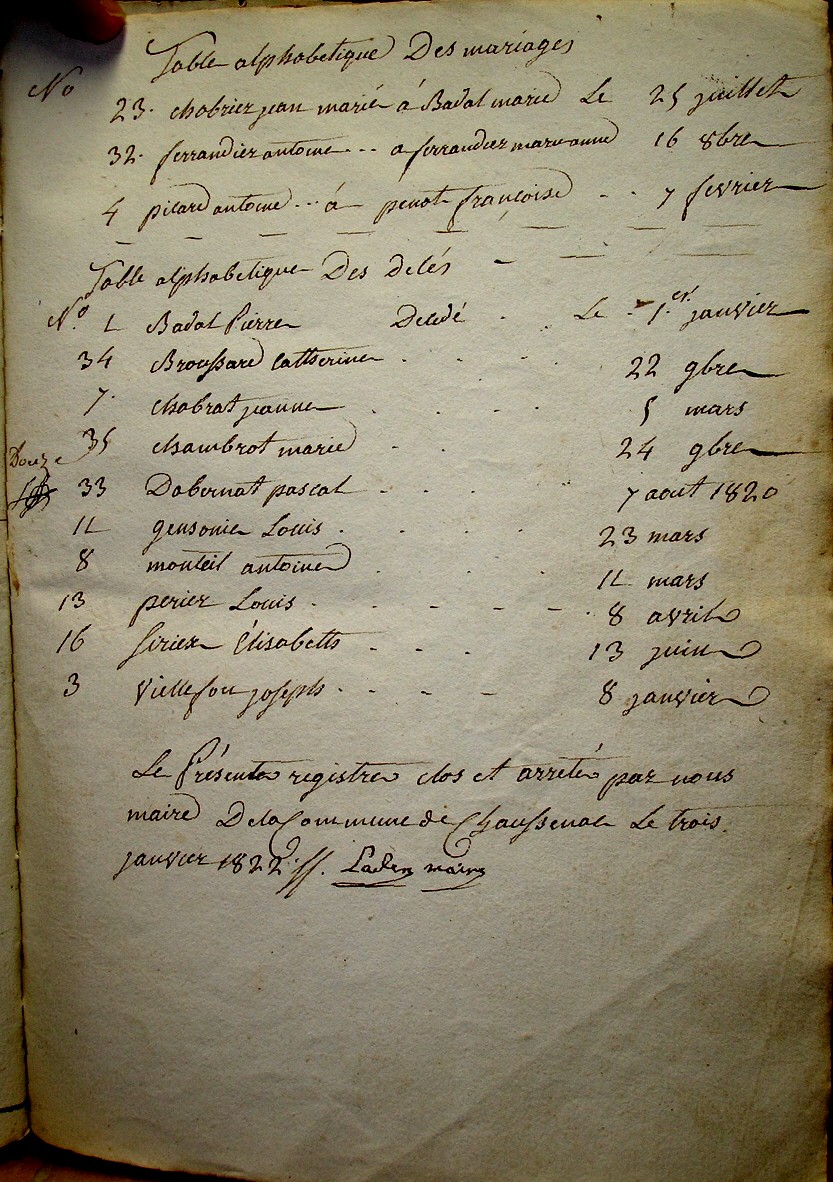 Table alphabetique Des mariages
No
23. chabrier jean marie á Badal marie Le 25 juillet
32. ferrandier antoine... a ferrandier marie anne 16 8bre
4 picard antoine... á penot françoise .. 7 fevrier
Table alphabetique Des Decés
No. 1 Badal Pierre Decedé . Le 1.er janvier
34 Broussard Catherine . . . 22 9bre
7. chabrat jeanne . . . 5 mars
35 chambrot marie . . . 24 9bre
Douze
33 Dabernat pascal . . . 7 aout 1820
11 gensonie Louis . . . 23 mars
8 monteil antoine . . . 11 mars
13 perier Louis . . . 8 avril
16 siriex Elisabeth . . . 13 juin
3 viellefon joseph . . . 8 janvier
Le Présente registre clos et arreté par nous
maire De la Commune de Chaussenac Le trois
janvier 1822 //. maire